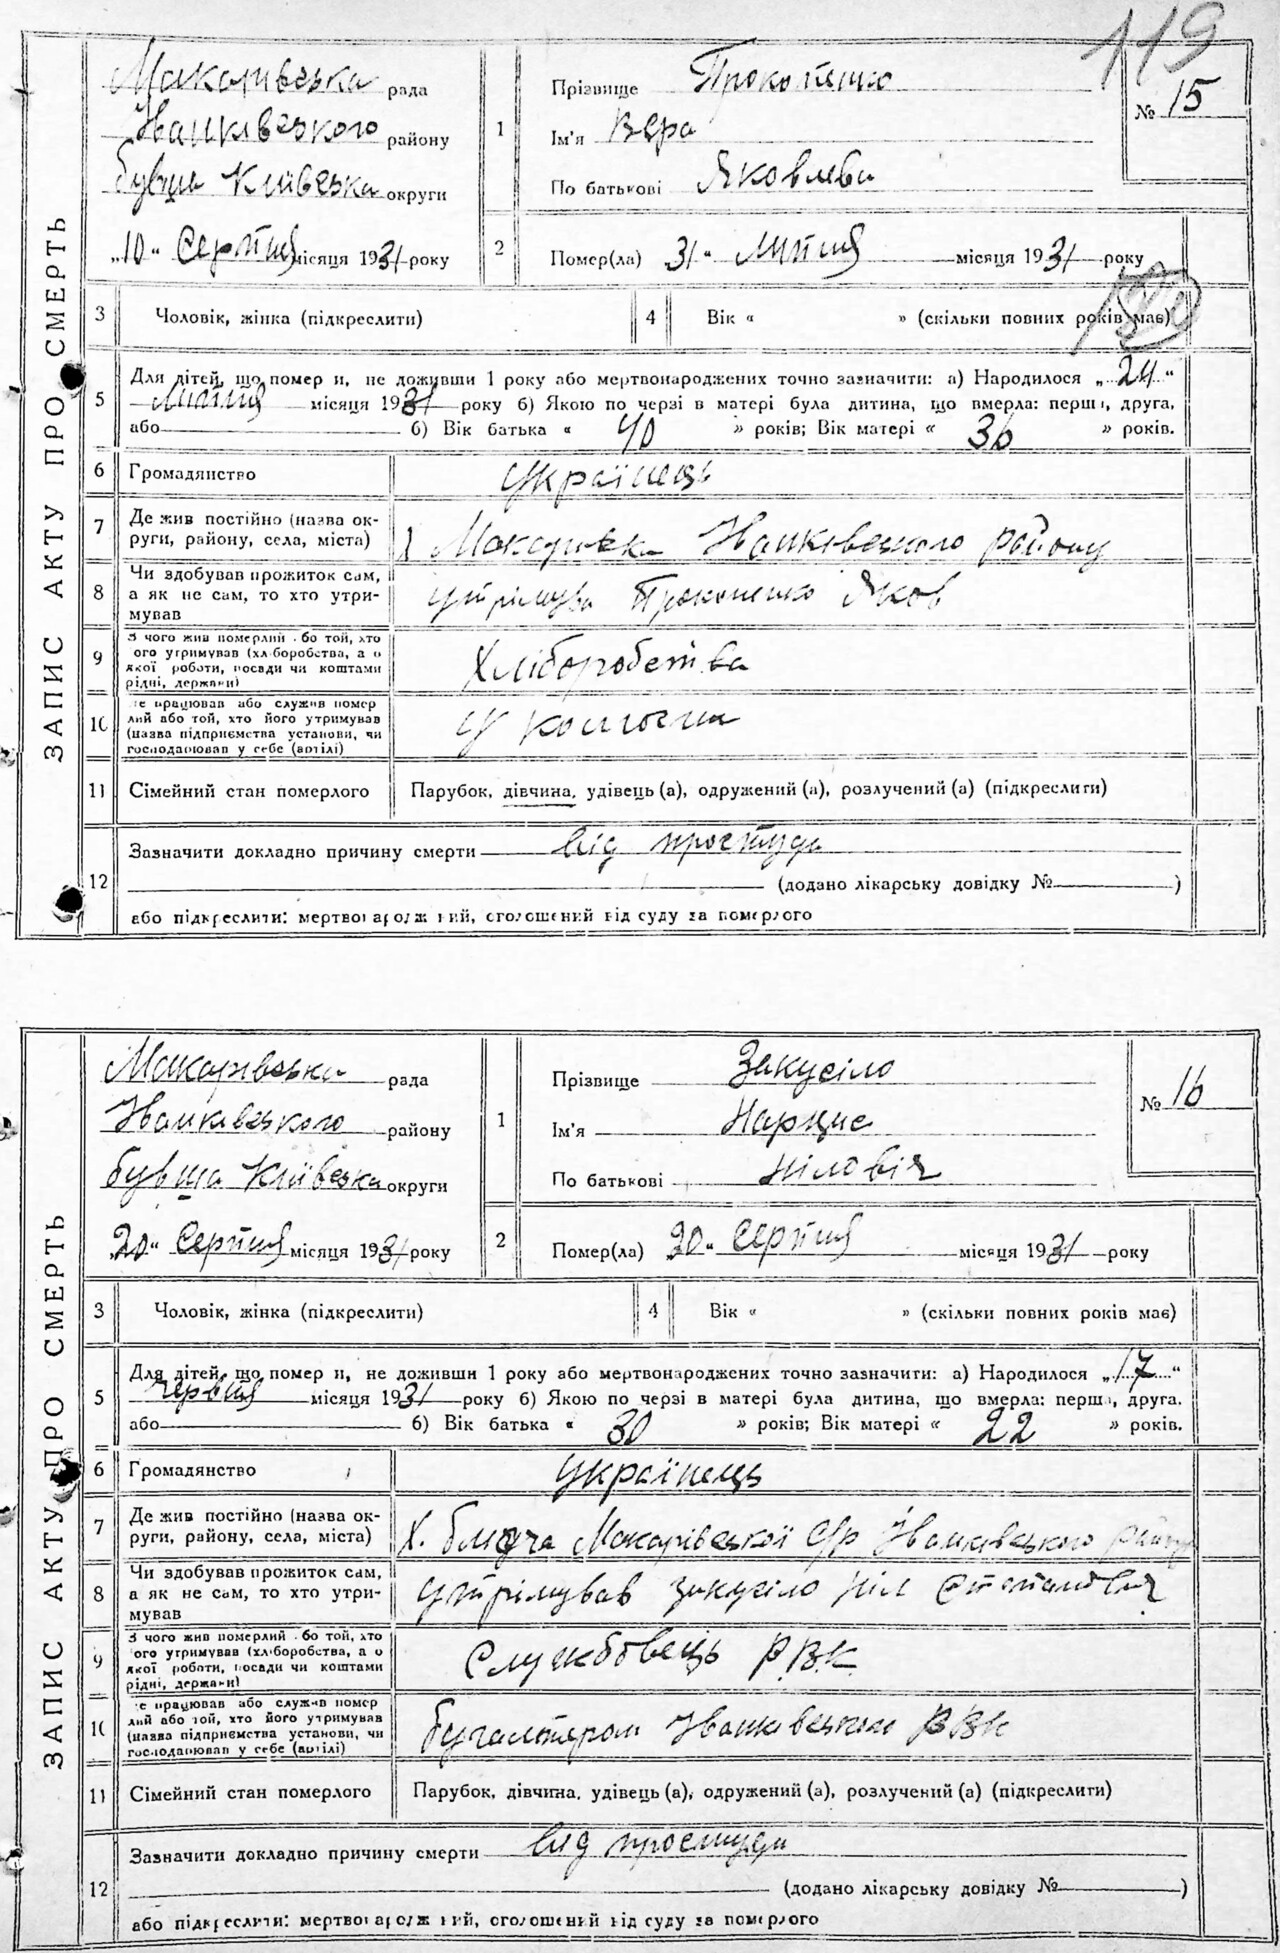 119
ЗАПИС АКТУ ПРО СМЕРТЬ
Макарівська рада
Іванківського району
бувша Київська округи
„10" Серпня місяця 1931 року
1
Прізвище Прокопенко
Ім'я Вера
По батькові Яковлевн
№ 15
2
Помер(ла) 31" Липня місяця 1931 року
3 Чоловік, жінка (підкреслити)
4 Вік « » (скільки повних років має)
5 Для дітей, що помер и, не доживши 1 року або мертвонароджених точно зазначити: а) Народилося „24"
Липня місяця 1931 року б) Якою по черзі в матері була дитина, що вмерла: перша, друга,
або б) Вік батька « 40 » років; Вік матері « 36 » років.
6 Громадянство українець
7 Де жив постійно (назва ок-
руги, району, села, міста) Макарівка Іванківського району
8 Чи здобував прожиток сам,
а як не сам, то хто утри-
мував утрімува Прокопенко Яков
9 З чого жив померлий або той, хто
ого утримував (хліборобства, а о
якої роботи, посади чи коштами
рідні, держави) Хліборобства
10 е працював або служив помер
лий або той, хто його утримував
(назва підприємства установи, чи
господарював у себе (вртілі) у
11 Сімейний стан померлого Парубок, дівчина, удівець(а), одружений(а), розлучений(а) (підкреслити)
12 Зазначити докладно причину смерти від простуди
(додано лікарську довідку № )
або підкреслити: мертвонароджений, оголошений від суду за померлого
ЗАПИС АКТУ ПРО СМЕРТЬ
Макарівська рада
Іванківського району
бувша Київська округи
20" Серпня місяця 1931 року
1
Прізвище Закусіло
Ім'я Нарцис
По батькові Ніловіч
№ 16
2
Помер(ла) 20" Серпня місяця 1931 року
3 Чоловік, жінка (підкреслити)
4 Вік « » (скільки повних років має)
5 Для дітей, що помер и, не доживши 1 року або мертвонароджених точно зазначити: а) Народилося „17"
червня місяця 1931 року б) Якою по черзі в матері була дитина, що вмерла: перша, друга.
або б) Вік батька « 30 » років; Вік матері « 22 » років.
6 Громадянство українець
7 Де жив постійно (назва ок-
руги, району, села, міста) Х. Макарівської с/р Іванківського району
8 Чи здобував прожиток сам,
а як не сам, то хто утри-
мував утрімував Закусіло Ніл Степановіч
9 З чого жив померлий або той, хто
ого утримував (хліборобства, а о
якої роботи, посади чи коштами
рідні, держави) Службовець РВК
10 е працював або служив помер
лий або той, хто його утримував
(назва підприємства установи, чи
господарював у себе (вртілі) бугалтером Іванківськом РВК
11 Сімейний стан померлого Парубок, дівчина, удівець(а), одружений(а), розлучений(а) (підкреслити)
12 Зазначити докладно причину смерти від простуди
(додано лікарську довідку № )
або підкреслити: мертвонароджений, оголошений від суду за померлого